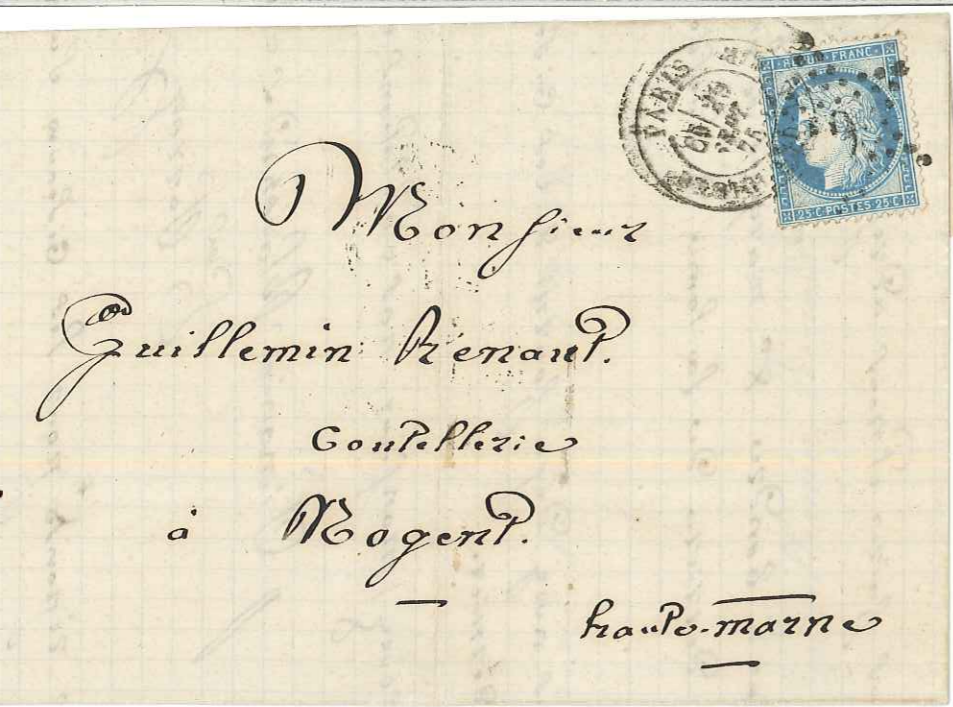 PARIS
29
75
RÉPUB. FRANC.
25 C. POSTES 25 C.
Monsieur
Guillemin Renaut.
Coutellerie
à Nogent.
haute-marne